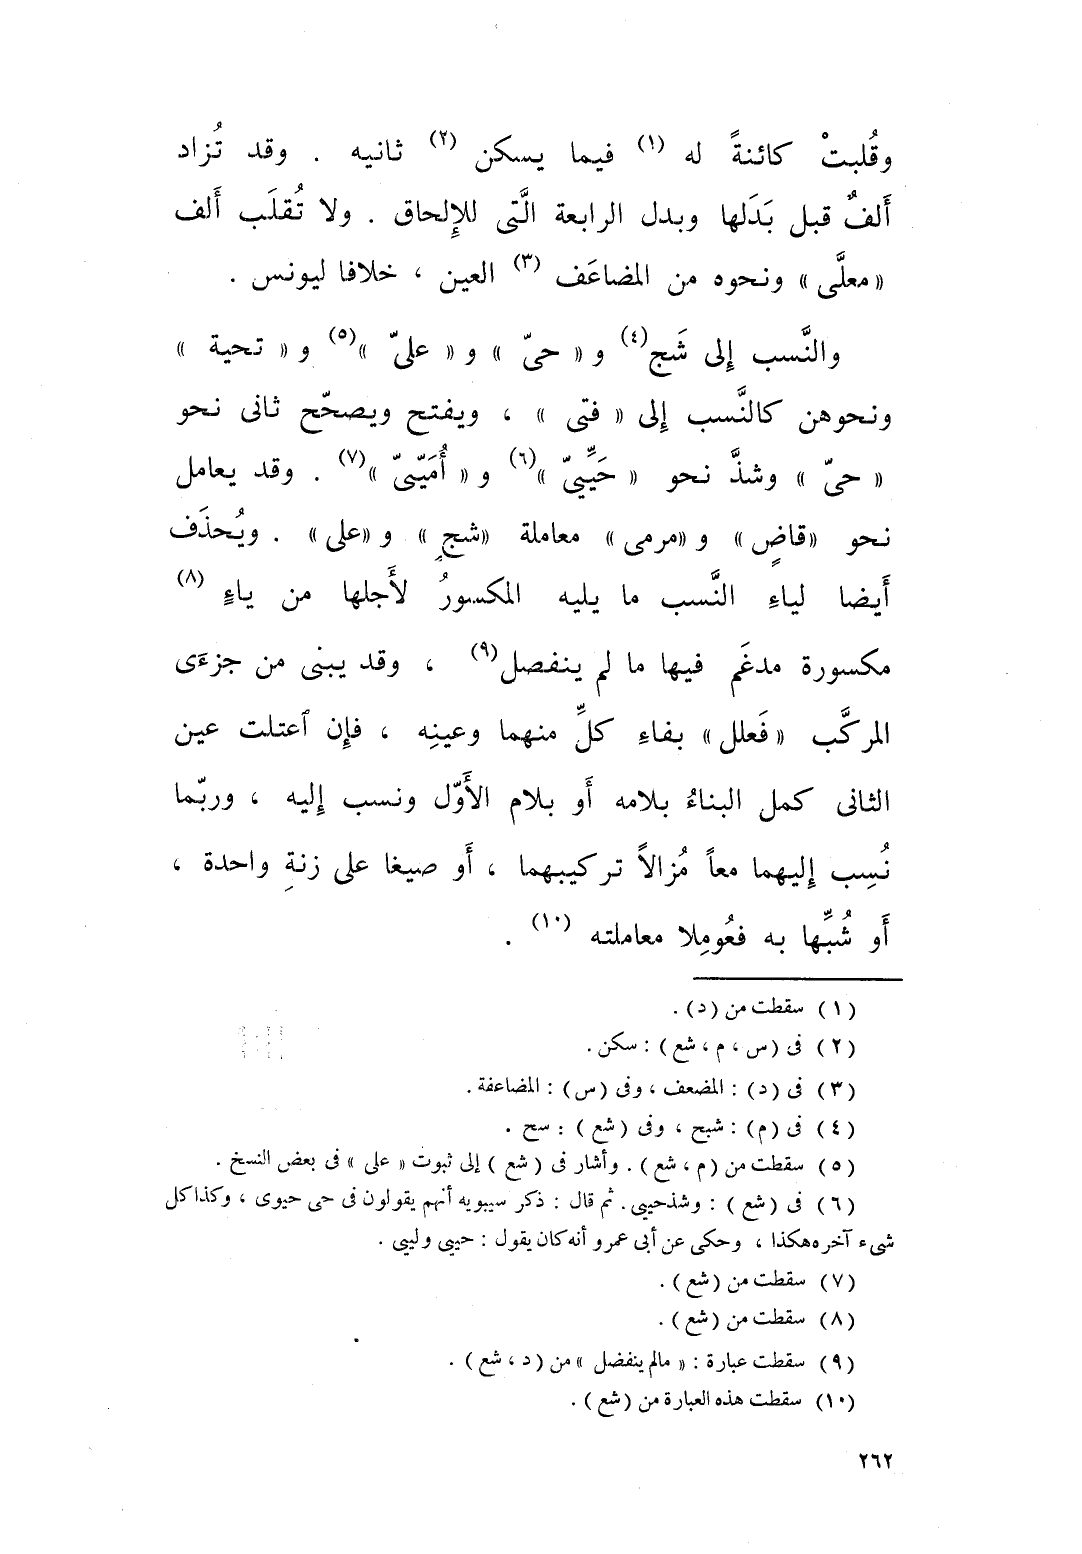 وقُلبتْ كائنةً له (١) فيما يسكن (٢) ثانيه . وقد تُزاد
أَلفٌ قبل بَدَلها وبدل الرابعة الَّتى للإِلحاق . ولا تُقلَب أَلف
« معلَّى » ونحوه من المضاعَف (٣) العين ، خلافا ليونس .
والنَّسب إِلى شَج (٤) و « حىّ » و « علىّ » (٥) و « تحية »
ونحوهن كالنَّسب إِلى « فتى » ، ويفتح ويصحّح ثانى نحو
« حىّ » وشذَّ نحو « حَيِّىّ » (٦) و « أُمَيّىّ » (٧) . وقد يعامل
نحو «قاضٍ» و «مرمى» معاملة «شجٍ» و «على» . ويُحذَف
أَيضا لياءِ النَّسب ما يليه المكسورُ لأَجلها من ياءٍ (٨)
مكسورة مدغَم فيها ما لم ينفصل (٩) ، وقد يبنى من جزءَى
المركَّب « فَعلل » بفاءِ كلٍّ منهما وعينِه ، فإِن ٱعتلت عين
الثانى كمل البناءُ بلامه أَو بلام الأَوّل ونسب إِليه ، وربّما
نُسِب إِليهما معاً مُزالاً تركيبهما ، أَو صيغا على زنةِ واحدة ،
أَو شُبِّها به فعُومِلا معاملته (١٠) .
(١) سقطت من (د) .
(٢) فى (س ، م ، شع) : سكن .
(٣) فى (د) : المضعف ، وفى (س) : المضاعفة .
(٤) فى (م) : شبح ، وفى (شع) : سح .
(٥) سقطت من (م ، شع) . وأشار فى (شع) إلى ثبوت « على » فى بعض النسخ .
(٦) فى (شع) : وشذحيبى . ثم قال : ذكر سيبويه أنهم يقولون فى حى حيوى ، وكذا كل
شىء آخره هكذا ، وحكى عن أبى عمرو أنه كان يقول : حيبى وليبى .
(٧) سقطت من (شع) .
(٨) سقطت من (شع) .
(٩) سقطت عبارة : « مالم ينفضل » من (د ، شع) .
(١٠) سقطت هذه العبارة من (شع) .
٢٦٢